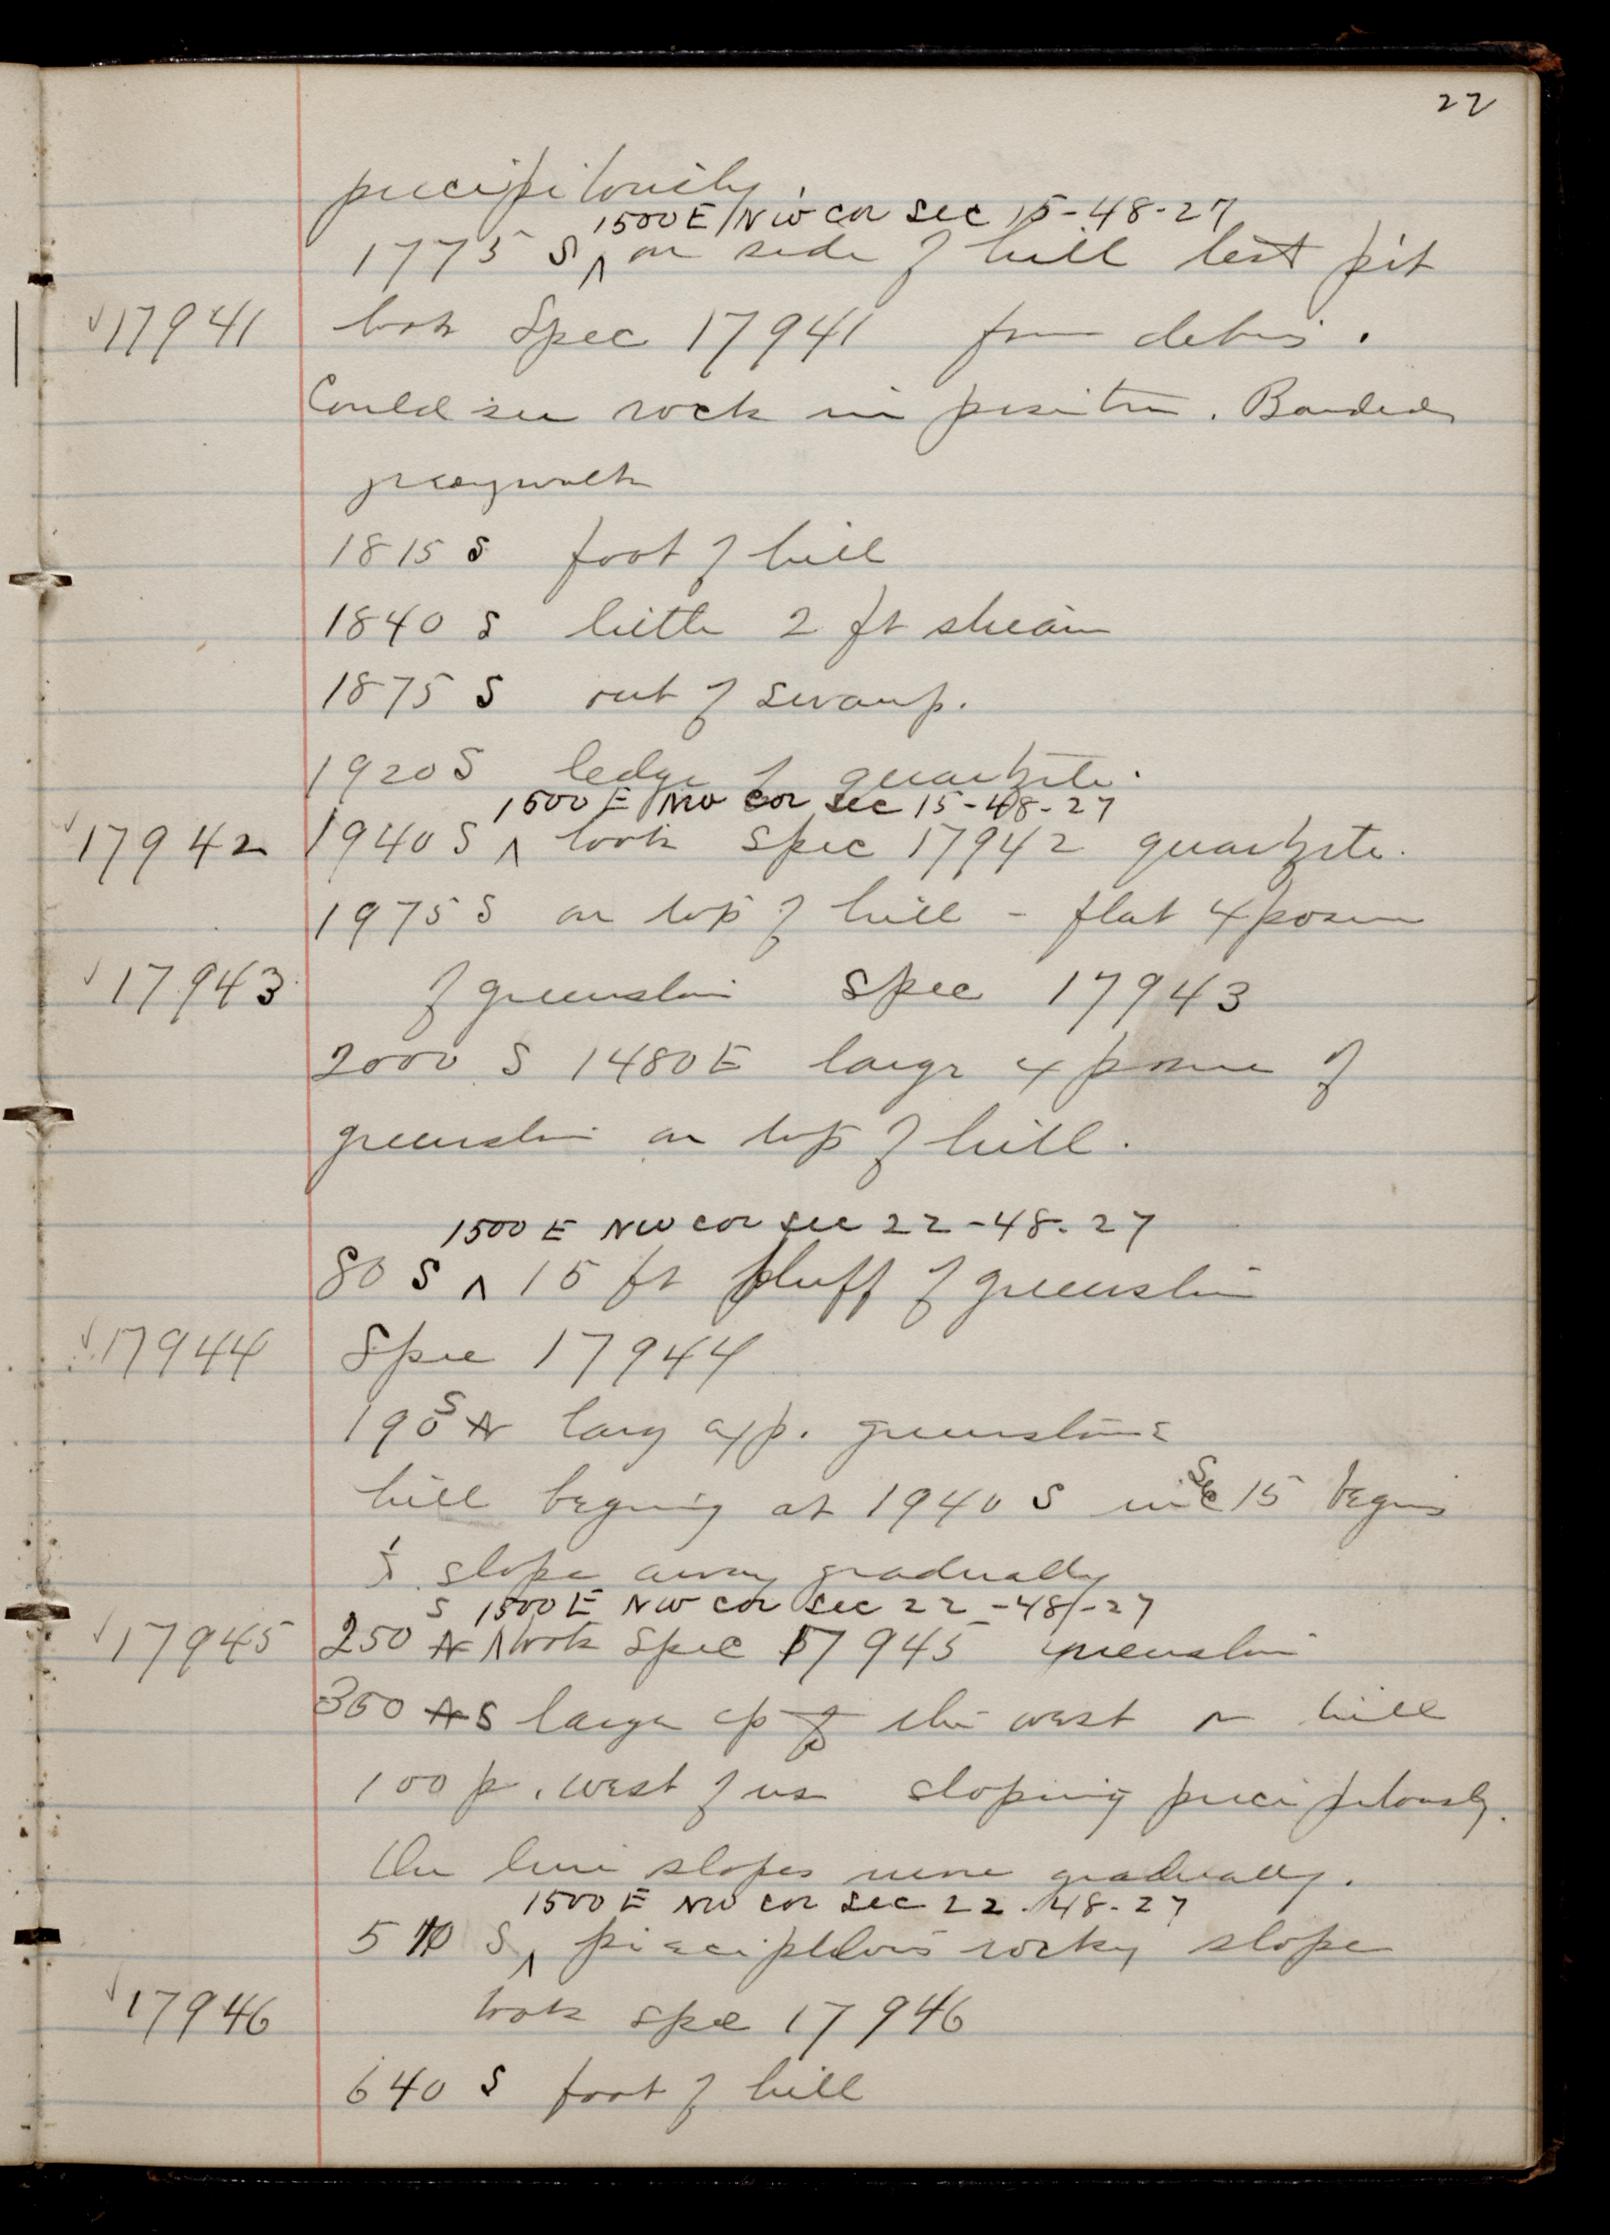 22
precipitously.
1500 E NW cor Sec 15-48-27
1775 S ^ on side of hill test pit
17941 took Spec 17941 from debris.
Could see rock in position. Banded
graywacke
1815 S foot of hill
1840 S little 2 ft stream
1875 S out of swamp.
1920 S ledge of quartzite.
1500 E NW cor Sec 15-48-27
17942 1940 S ^ took Spec 17942 quartzite.
1975 S on top of hill - flat exposure
17943 of greenstone Spec 17943
2000 S 1480 E large exposure of
greenstone on top of hill.
1500 E NW cor sec 22-48-27
80 S ^ 15 ft bluff of greenstone
17944 Spec 17944
190 S N large exp. greenstone
hill begining at 1940 S in Sec 15 begins
to slope away gradually
S 1500 E NW cor Sec 22-48-27
17945 250 N ^ took Spec 17945 greenstone
350 N S large exp to the west on hill
100 p. west of us sloping precipitously.
On line slopes more gradually.
1500 E NW cor Sec 22-48-27
S ^ precipitous rocky slope
17946 took spec 17946
640 S foot of hill